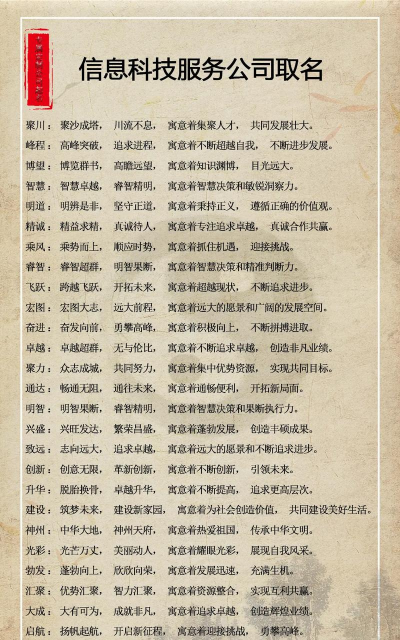 信息科技服务公司取名
聚川： 聚沙成塔， 川流不息， 寓意着集聚人才， 共同发展壮大。
峰程： 高峰突破， 追求进程， 寓意着不断超越自我， 不断进步发展。
博望： 博览群书， 高瞻远望， 寓意着知识渊博， 目光远大。
智慧： 智慧卓越， 睿智精明， 寓意着智慧决策和敏锐洞察力。
明道： 明辨是非， 坚守正道， 寓意着秉持正义， 遵循正确的价值观。
精诚： 精益求精， 真诚待人， 寓意着专注追求卓越， 真诚合作共赢。
乘风： 乘势而上， 顺应时势， 寓意着抓住机遇， 迎接挑战。
睿智： 睿智超群， 明智果断， 寓意着智慧决策和精准判断力。
飞跃： 跨越飞跃， 开拓未来， 寓意着超越现状， 不断追求进步。
宏图： 宏图大志， 远大前程， 寓意着远大的愿景和广阔的发展空间。
奋进： 奋发向前， 勇攀高峰， 寓意着积极向上， 不断拼搏进取。
卓越： 卓越超群， 无与伦比， 寓意着不断追求卓越， 创造非凡业绩。
聚力： 众志成城， 共同努力， 寓意着集中优势资源， 实现共同目标。
通达： 畅通无阻， 通往未来， 寓意着通畅便利， 开拓新局面。
明智： 明智果断， 睿智精明， 寓意着智慧决策和果断执行力。
兴盛： 兴旺发达， 繁荣昌盛， 寓意着蓬勃发展， 创造丰硕成果。
致远： 志向远大， 追求卓越， 寓意着远大的愿景和不断追求进步。
创新： 创意无限， 革新创新， 寓意着不断创新， 引领未来。
升华： 脱胎换骨， 卓越升华， 寓意着不断提高， 追求更高层次。
建设： 筑梦未来， 建设新家园， 寓意着为社会创造价值， 共同建设美好生活。
神州： 中华大地， 神州天府， 寓意着热爱祖国， 传承中华文明。
光彩： 光芒万丈， 美丽动人， 寓意着耀眼光彩， 展现自我风采。
勃发： 蓬勃向上， 欣欣向荣， 寓意着发展迅速， 充满生机。
汇聚： 优势汇聚， 智力汇聚， 寓意着资源整合， 实现互利共赢。
大成： 大有可为， 成就非凡， 寓意着追求卓越， 创造辉煌业绩。
启航： 扬帆起航， 开启新征程， 寓意着迎接挑战， 勇攀高峰。